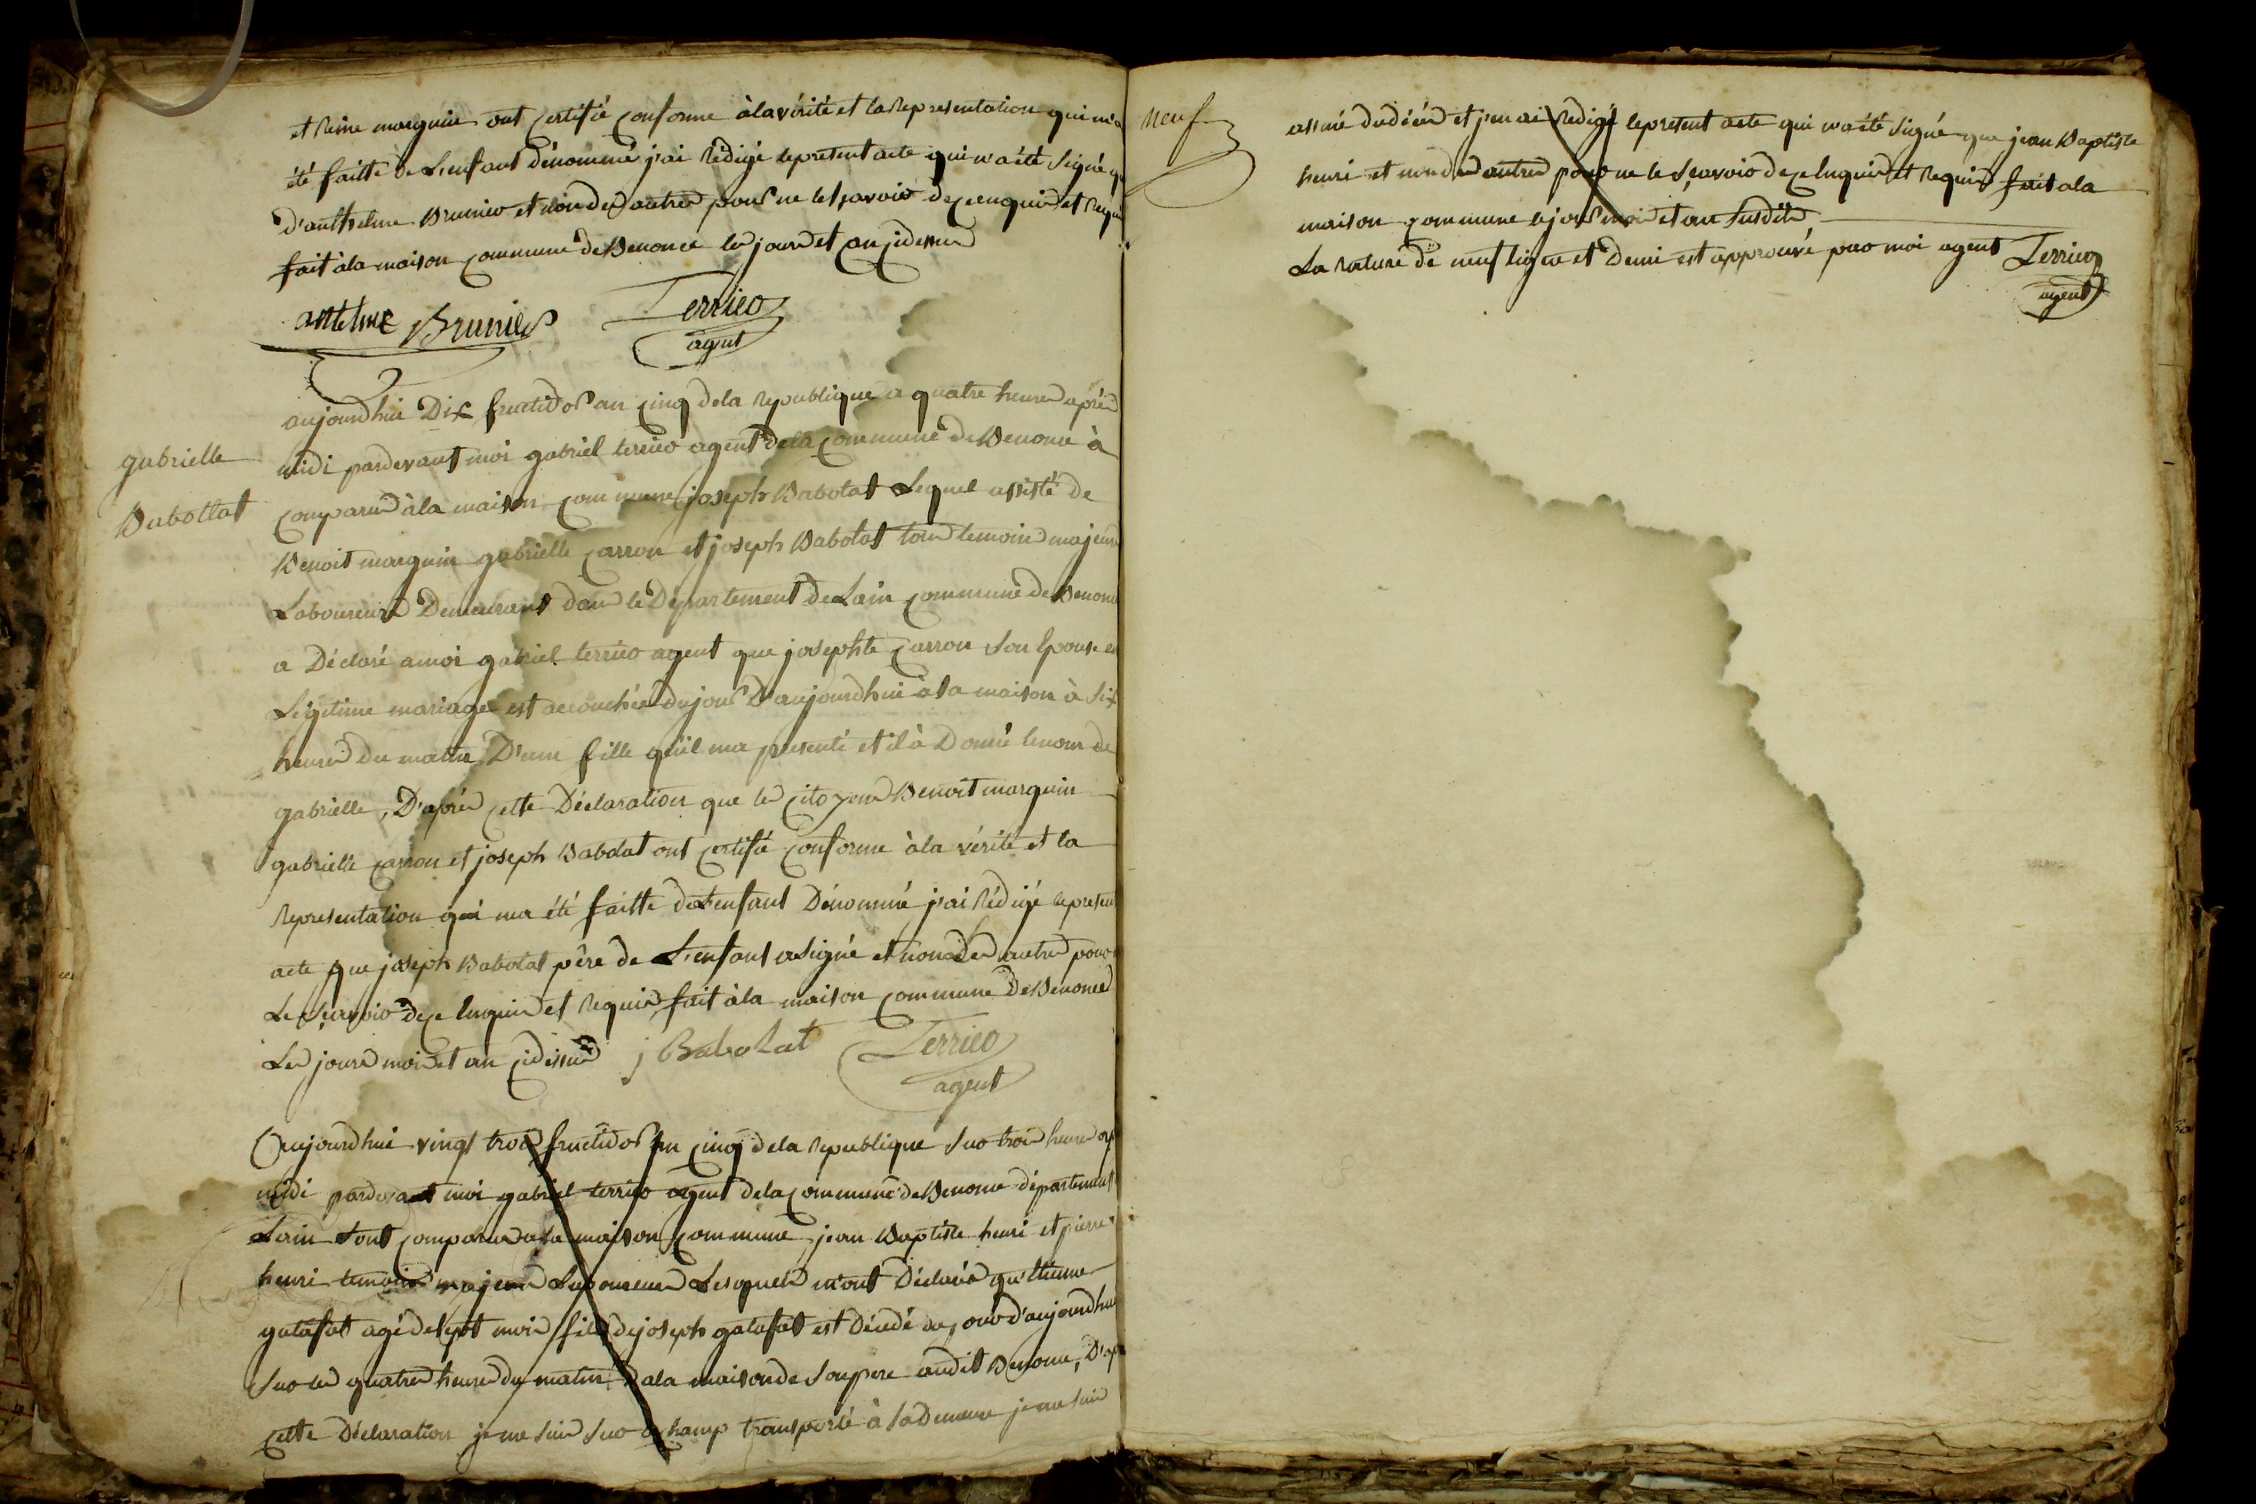 et Reine marguin ont certifié conforme à la vérité et la Representation qui m'a
été faitte de L'enfant dénommé j'ai Rédigé le present acte qui n'a été Signé q
d'anthelme Brunier et non des autres pour ne le sçavoir de ce enquis et Requi
fait à la maison commune de Benonce les jour et an ci dessus
antelme Brunier
Terrier
agent
aujourdhui Dix fructidor an cinq de la Republique a quatre heures après
midi pardevant moi gabriel terrier agent de la commune de Benonce à
gabrielle
Babollat
comparus à la maison commune joseph Babolat Lequel assisté de
Benoit marguin gabrielle carron et joseph Babolat tous temoins majeurs
Laboureurs Demeurant dans le Departement de Lain commune de Benonce
a Déclaré a moi gabriel terrier agent que josephte Carron Son Epouse en
Légitime mariage est accouchée du jour D'aujourdhui à sa maison à Six
heures du matin, D'une fille qu'il ma presenté et il à Donné le nom de
gabrielle, D'après cette Déclaration que les citoyens Benoit marguin
gabrielle carron et joseph Babolat ont certifié conforme à la vérité et la
Representation qui ma été faitte de L'enfant Dénommé j'ai Rédigé le present
acte que joseph Babolat père de L'enfant a Signé et non des autres pour
Le sçavoir de ce Enquis et Requis fait à la maison commune De Benonce
Les jours mois et an ci dessus
j Babolat
Terrier
agent
Aujourdhui vingt trois fructidor an cinq de la Republique Sur trois heures ap
midi pardevant moi gabriel terrier agent de la commune de Benonce département
Lain Sont comparus a la maison commune jean Baptiste henri et pierre
henri temoins majeurs Laboureurs Lesquels m'ont Déclaré qu'Etienne
galafat agé de Sept mois fils de joseph galafat est Décédé du jour d'aujourdhui
Sur les quatres heures du matin, a la maison de Son pere audit Benonce, D'ap
cette Déclaration je me Suis Sur le champ transporté à Sa Demeure je me suis
neuf
assuré du décès et j'en ai Redigé le present acte qui n'a été Signé que jean Baptiste
henri et non des autres pour ne le Sçavoir de ce Enquis et Requis fait a la
maison commune le jour mois et an Susdits
La Rature de neuf ligne et Demi est approuvé par moi agent Terrier
agent